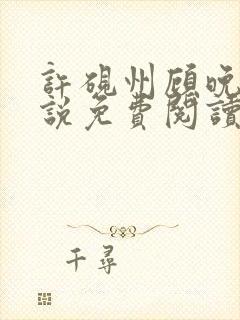 許硯州顧晚
說免費閱讀
千尋